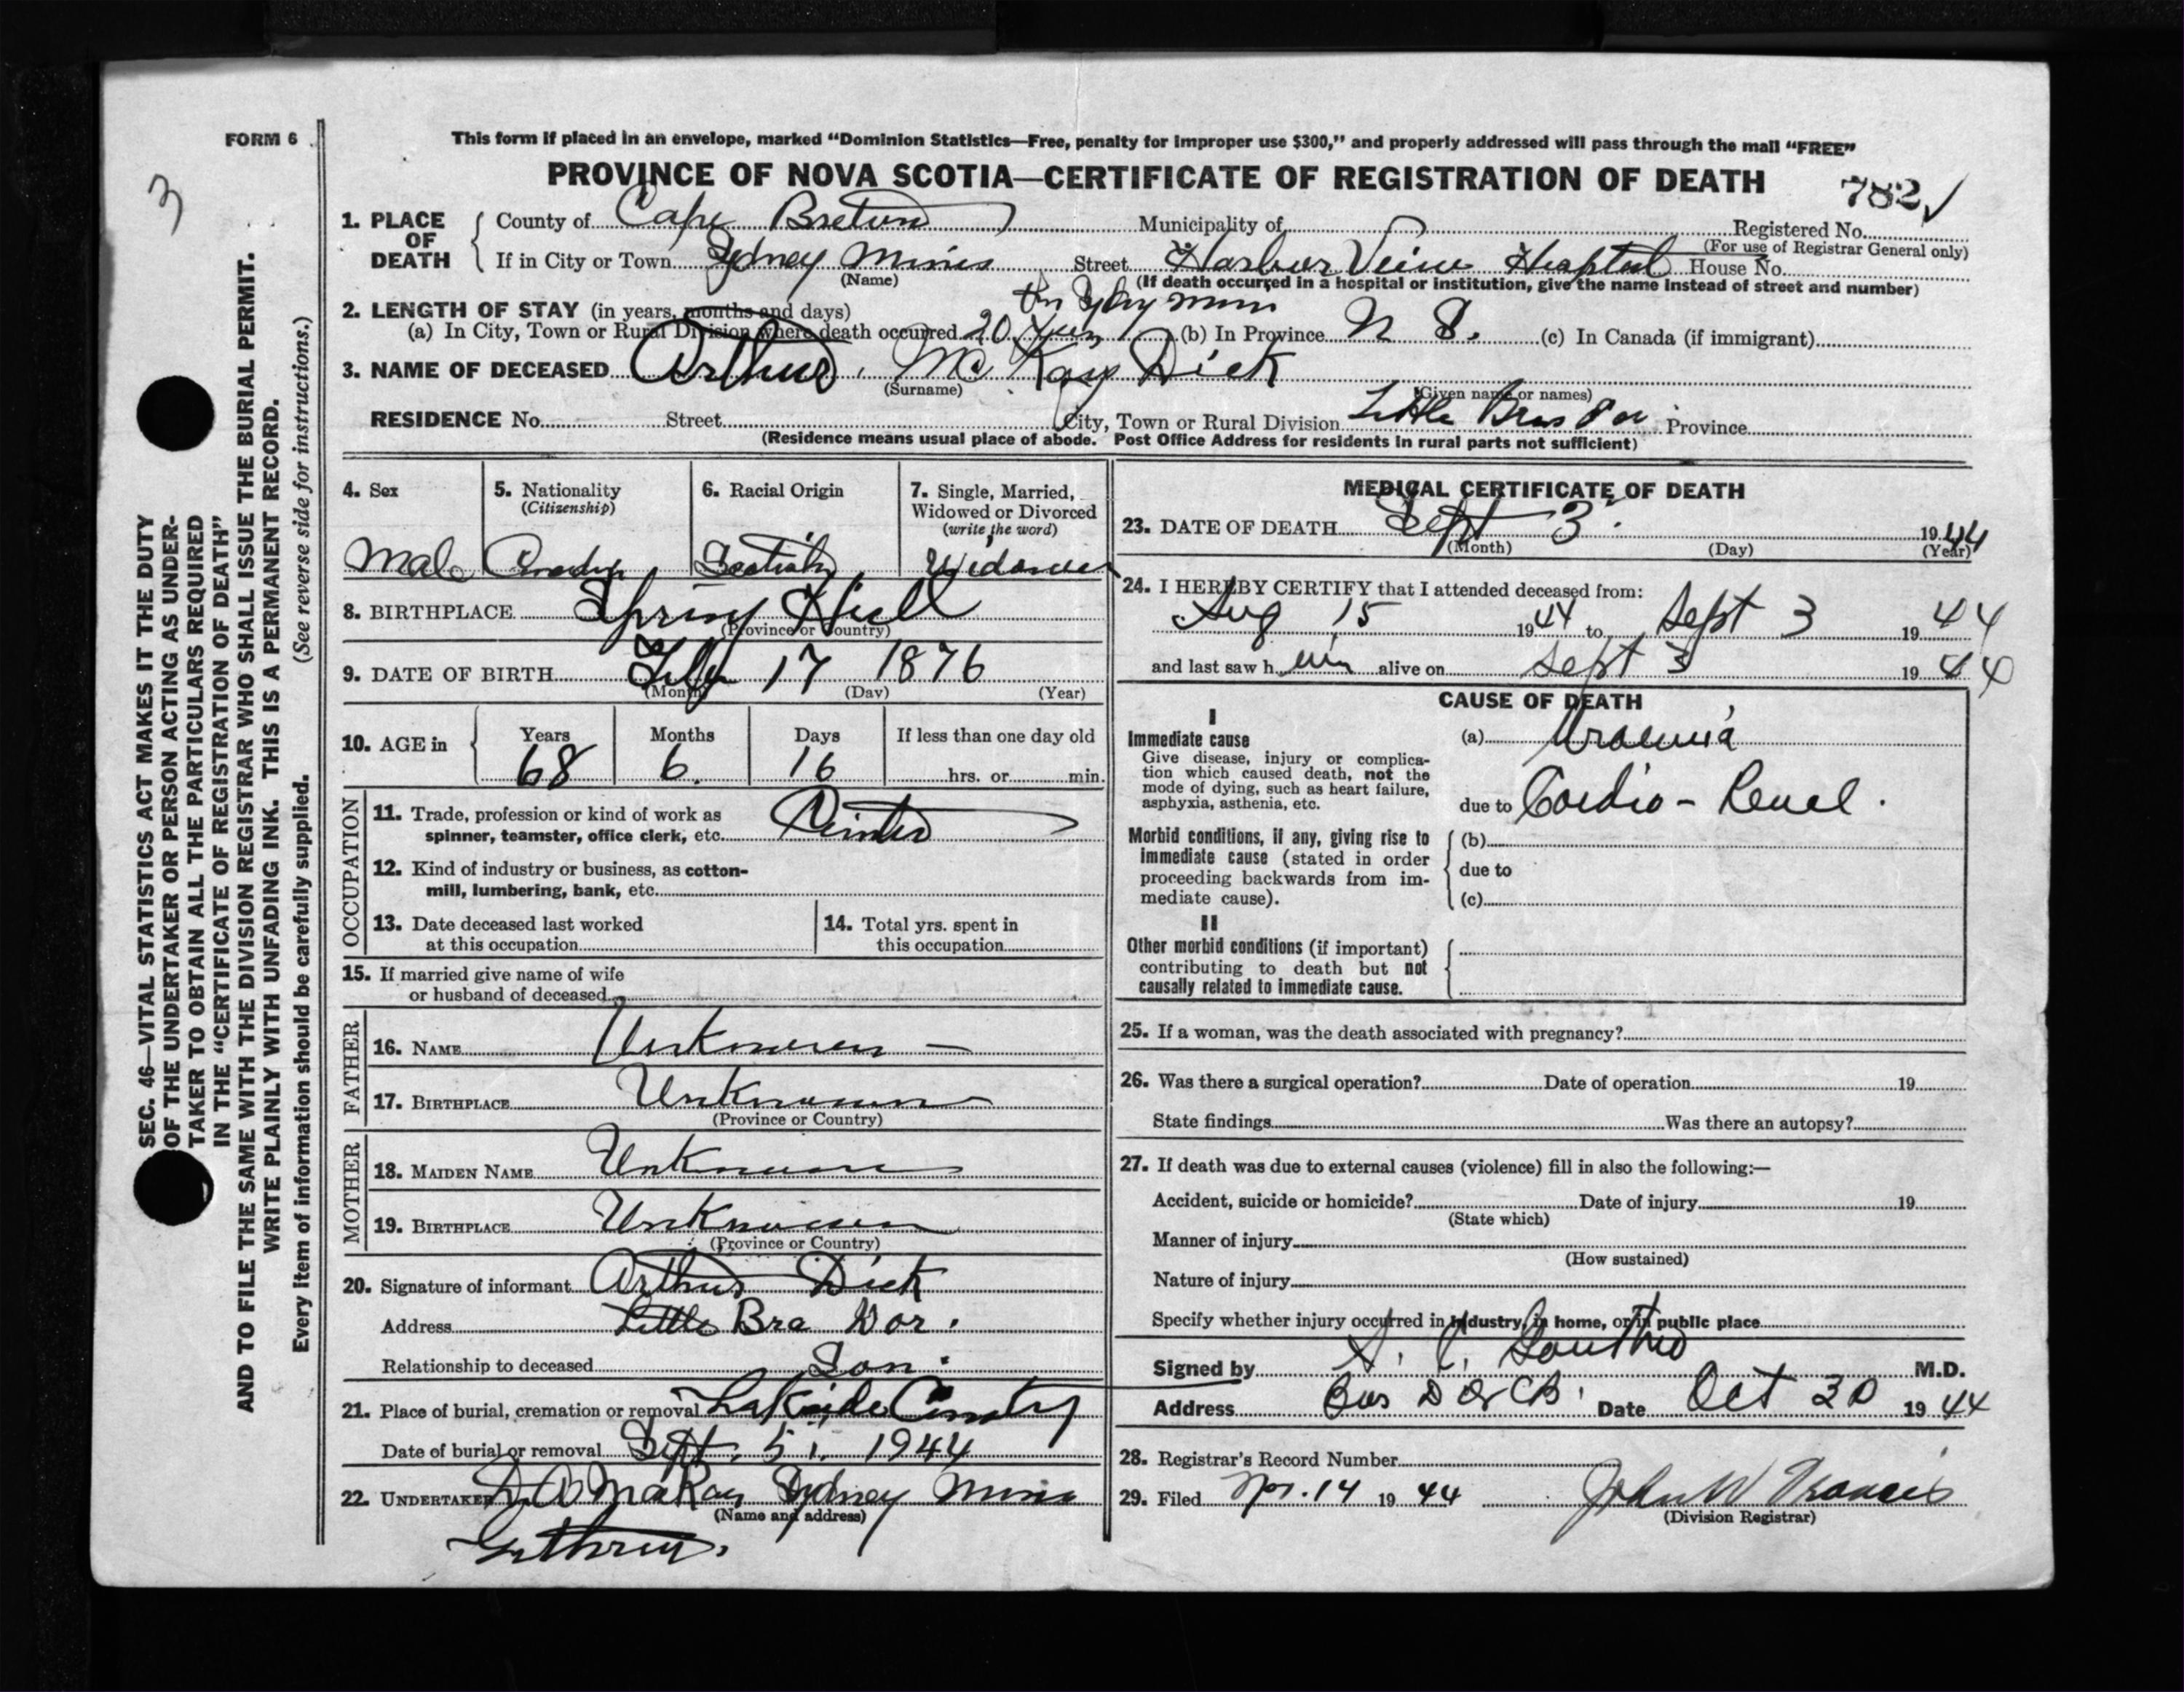 FORM 6
This form if placed in an envelope, marked “Dominion Statistics—Free, penalty for improper use $300,” and properly addressed will pass through the mail “FREE”
3
PROVINCE OF NOVA SCOTIA—CERTIFICATE OF REGISTRATION OF DEATH 782
1. PLACE OF DEATH
County of Cape Breton Municipality of Registered No.
(For use of Registrar General only)
If in City or Town Sydney Mines Street Harbor View Hospital House No.
(Name) (If death occurred in a hospital or institution, give the name instead of street and number)
2. LENGTH OF STAY (in years, months and days)
(a) In City, Town or Rural Division where death occurred 20 (b) In Province N S. (c) In Canada (if immigrant)
3. NAME OF DECEASED Arthur McKay Dick
(Surname) (Given name or names)
RESIDENCE No. Street City, Town or Rural Division Little Bras Dor Province
(Residence means usual place of abode. Post Office Address for residents in rural parts not sufficient)
4. Sex
Male
5. Nationality
(Citizenship)
6. Racial Origin
Scotish
7. Single, Married,
Widowed or Divorced
(write the word)
Widower
8. BIRTHPLACE Spring Hill
(Province or Country)
9. DATE OF BIRTH Feby 17 1876
(Month) (Day) (Year)
10. AGE in
Years Months Days If less than one day old
68 6. 16 hrs. or min.
OCCUPATION
11. Trade, profession or kind of work as
spinner, teamster, office clerk, etc.
12. Kind of industry or business, as cotton-
mill, lumbering, bank, etc.
13. Date deceased last worked
at this occupation
14. Total yrs. spent in
this occupation
15. If married give name of wife
or husband of deceased
FATHER
16. NAME Unknown —
17. BIRTHPLACE Unknown
(Province or Country)
MOTHER
18. MAIDEN NAME Unknown
19. BIRTHPLACE Unknown
(Province or Country)
20. Signature of informant Arthur Dick
Address Little Bra Dor.
Relationship to deceased Son.
21. Place of burial, cremation or removal Lakside
Date of burial or removal Sept. 5, 1944
22. UNDERTAKER D A McKay Sydney Mines
(Name and address)
MEDICAL CERTIFICATE OF DEATH
23. DATE OF DEATH Sept 3 1944
(Month) (Day) (Year)
24. I HEREBY CERTIFY that I attended deceased from:
Aug 15 1944 to Sept 3 1944
and last saw him alive on Sept 3 1944
CAUSE OF DEATH
I
Immediate cause
Give disease, injury or complica-
tion which caused death, not the
mode of dying, such as heart failure,
asphyxia, asthenia, etc.
(a) Uraemia
due to Cardio-Renal.
Morbid conditions, if any, giving rise to
immediate cause (stated in order
proceeding backwards from im-
mediate cause).
(b)
due to
(c)
II
Other morbid conditions (if important)
contributing to death but not
causally related to immediate cause.
25. If a woman, was the death associated with pregnancy?
26. Was there a surgical operation? Date of operation 19
State findings Was there an autopsy?
27. If death was due to external causes (violence) fill in also the following:—
Accident, suicide or homicide? Date of injury 19
(State which)
Manner of injury
(How sustained)
Nature of injury
Specify whether injury occurred in industry, in home, or in public place
Signed by M.D.
Address Date Oct 30 1944
28. Registrar's Record Number
29. Filed Nov. 14 1944 John W Francis
(Division Registrar)
SEC. 46—VITAL STATISTICS ACT MAKES IT THE DUTY
OF THE UNDERTAKER OR PERSON ACTING AS UNDER-
TAKER TO OBTAIN ALL THE PARTICULARS REQUIRED
IN THE “CERTIFICATE OF REGISTRATION OF DEATH”
AND TO FILE THE SAME WITH THE DIVISION REGISTRAR WHO SHALL ISSUE THE BURIAL PERMIT.
WRITE PLAINLY WITH UNFADING INK. THIS IS A PERMANENT RECORD.
Every item of information should be carefully supplied. (See reverse side for instructions.)